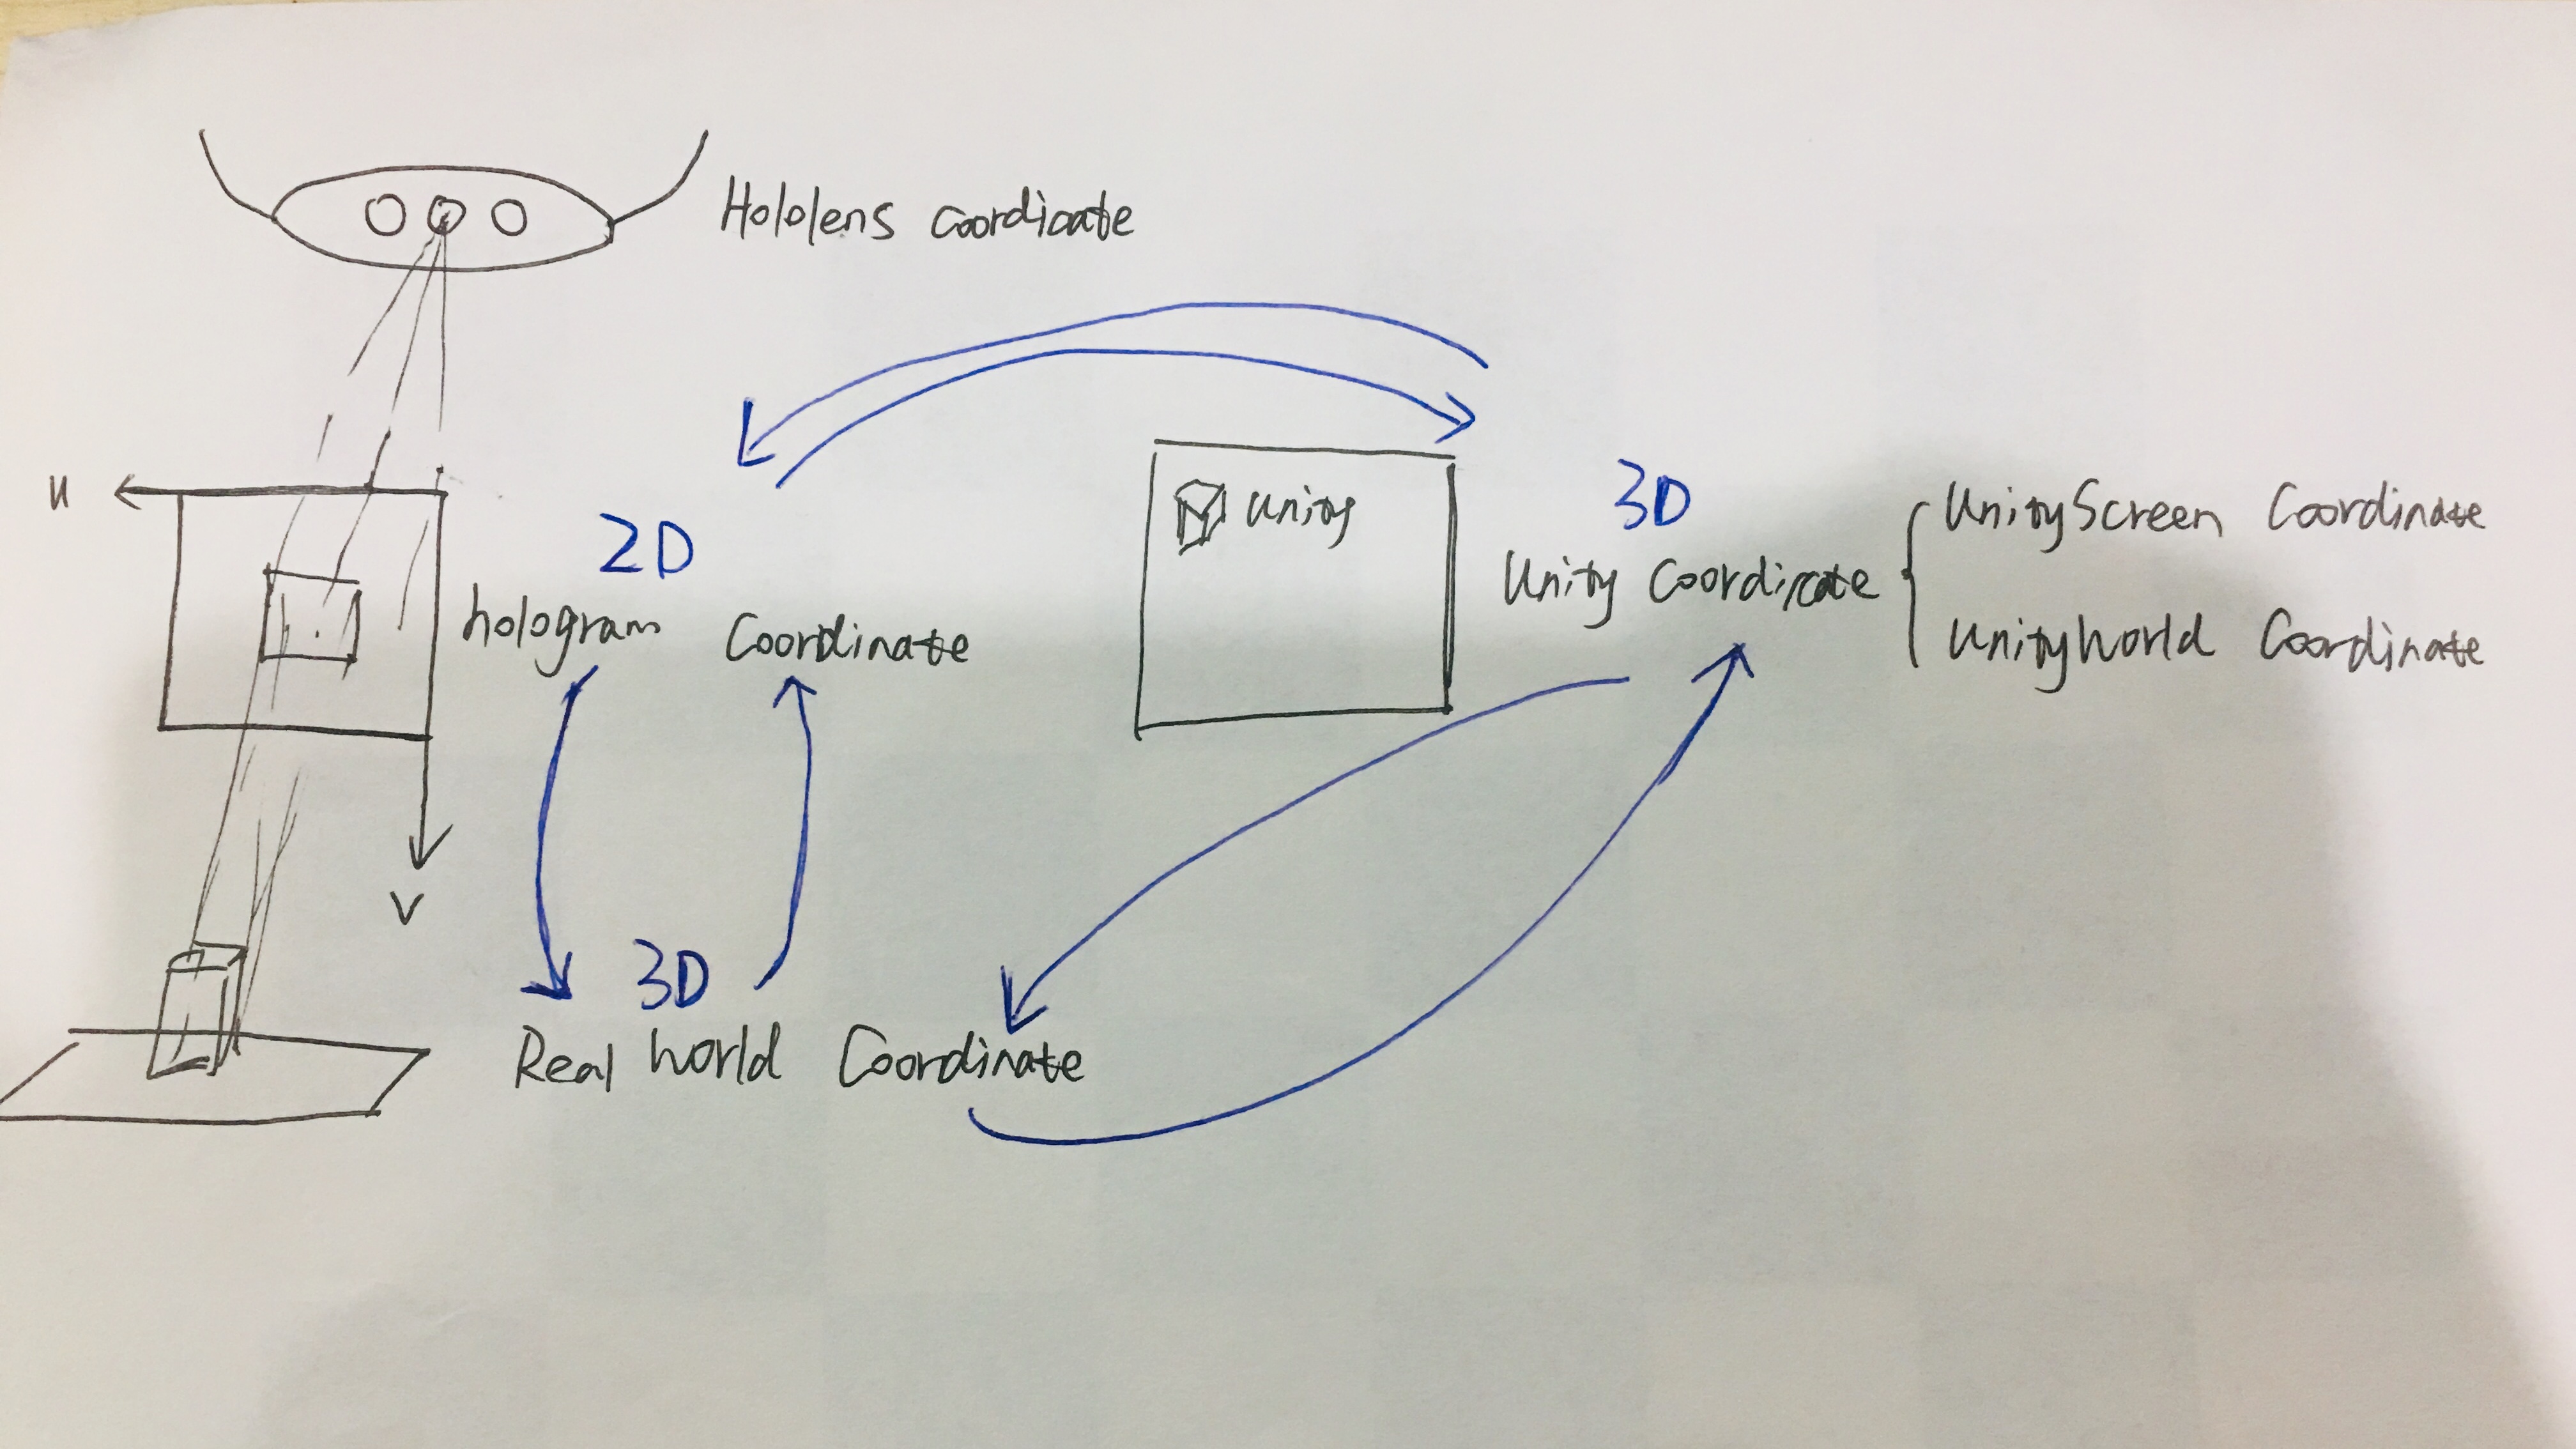 Hololens Coordicate
u
2D
hologram Coordinate
Unity
3D
Unity Coordicate
UnityScreen Coordinate
UnityWorld Coordinate
v
3D
Real World Coordinate